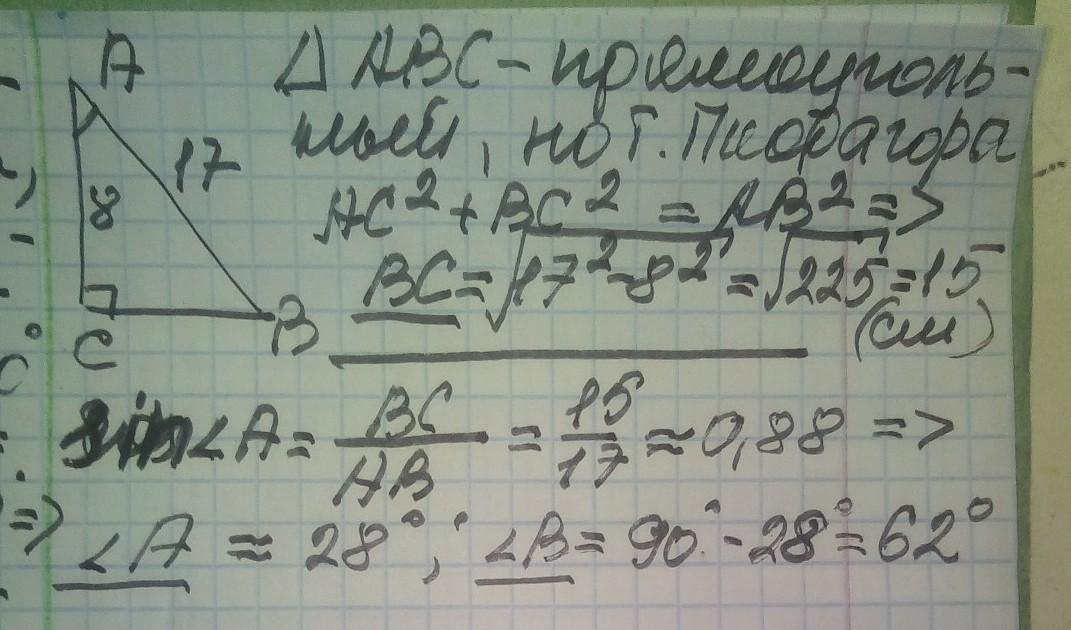 A
17
8
C
B
△ ABC - прямоуголь-
ный, по т. Пифагора
AC² + BC² = AB² =>
BC = √17² - 8² = √225 = 15
(см)
sin∠A = BC/AB = 15/17 ≈ 0,88 =>
=> ∠A ≈ 28°; ∠B = 90° - 28° = 62°